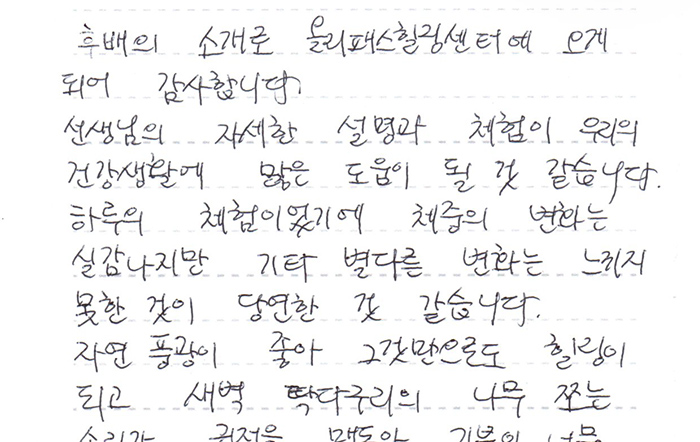 후배의 소개로 올리패스힐링센터에 오게
되어 감사합니다.
선생님의 자세한 설명과 체험이 우리의
건강생활에 많은 도움이 될 것 같습니다.
하루의 체험이었기에 체중의 변화는
실감나지만 기타 별다른 변화는 느끼지
못한 것이 당연한 것 같습니다.
자연 풍광이 좋아 그것만으로도 힐링이
되고 새벽 딱다구리의 나무 쪼는
소리가